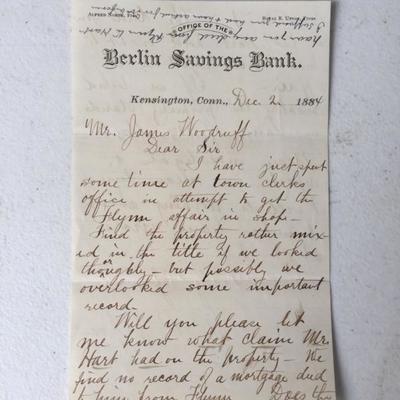 OFFICE OF THE
Berlin Savings Bank.
Kensington, Conn., Dec 2 1884
Mr. James Woodruff
Dear Sir
I have just spent
some time at town clerks
office in attempt to get the
Flynn affair in shape -
Find the property rather mix-
ed in the title if we looked
thoroughly - but possibly we
overlooked some important
record -
Will you please let
me know what claim Mr.
Hart had on the property - We
find no record of a mortgage deed
to him from Flynn Does the